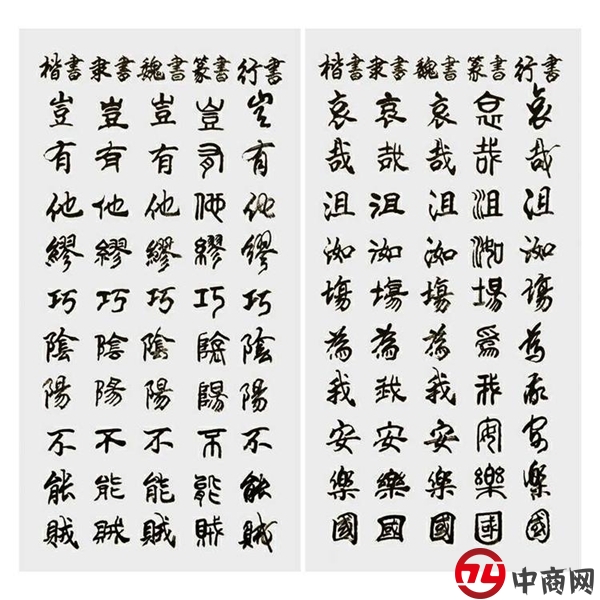 楷書 隶書 魏書 篆書 行書
豈 豈 豈 豈 豈
有 有 有 有 有
他 他 他 他 他
繆 繆 繆 繆 繆
巧 巧 巧 巧 巧
陰 陰 陰 陰 陰
陽 陽 陽 陽 陽
不 不 不 不 不
能 能 能 能 能
賊 賊 賊 賊 賊
楷書 隶書 魏書 篆書 行書
哀 哀 哀 哀 哀
哉 哉 哉 哉 哉
沮 沮 沮 沮 沮
洳 洳 洳 洳 洳
塲 場 塲 場 塲
為 為 為 為 為
我 我 我 我 我
安 安 安 安 安
樂 樂 樂 樂 樂
國 國 國 國 國
中商网